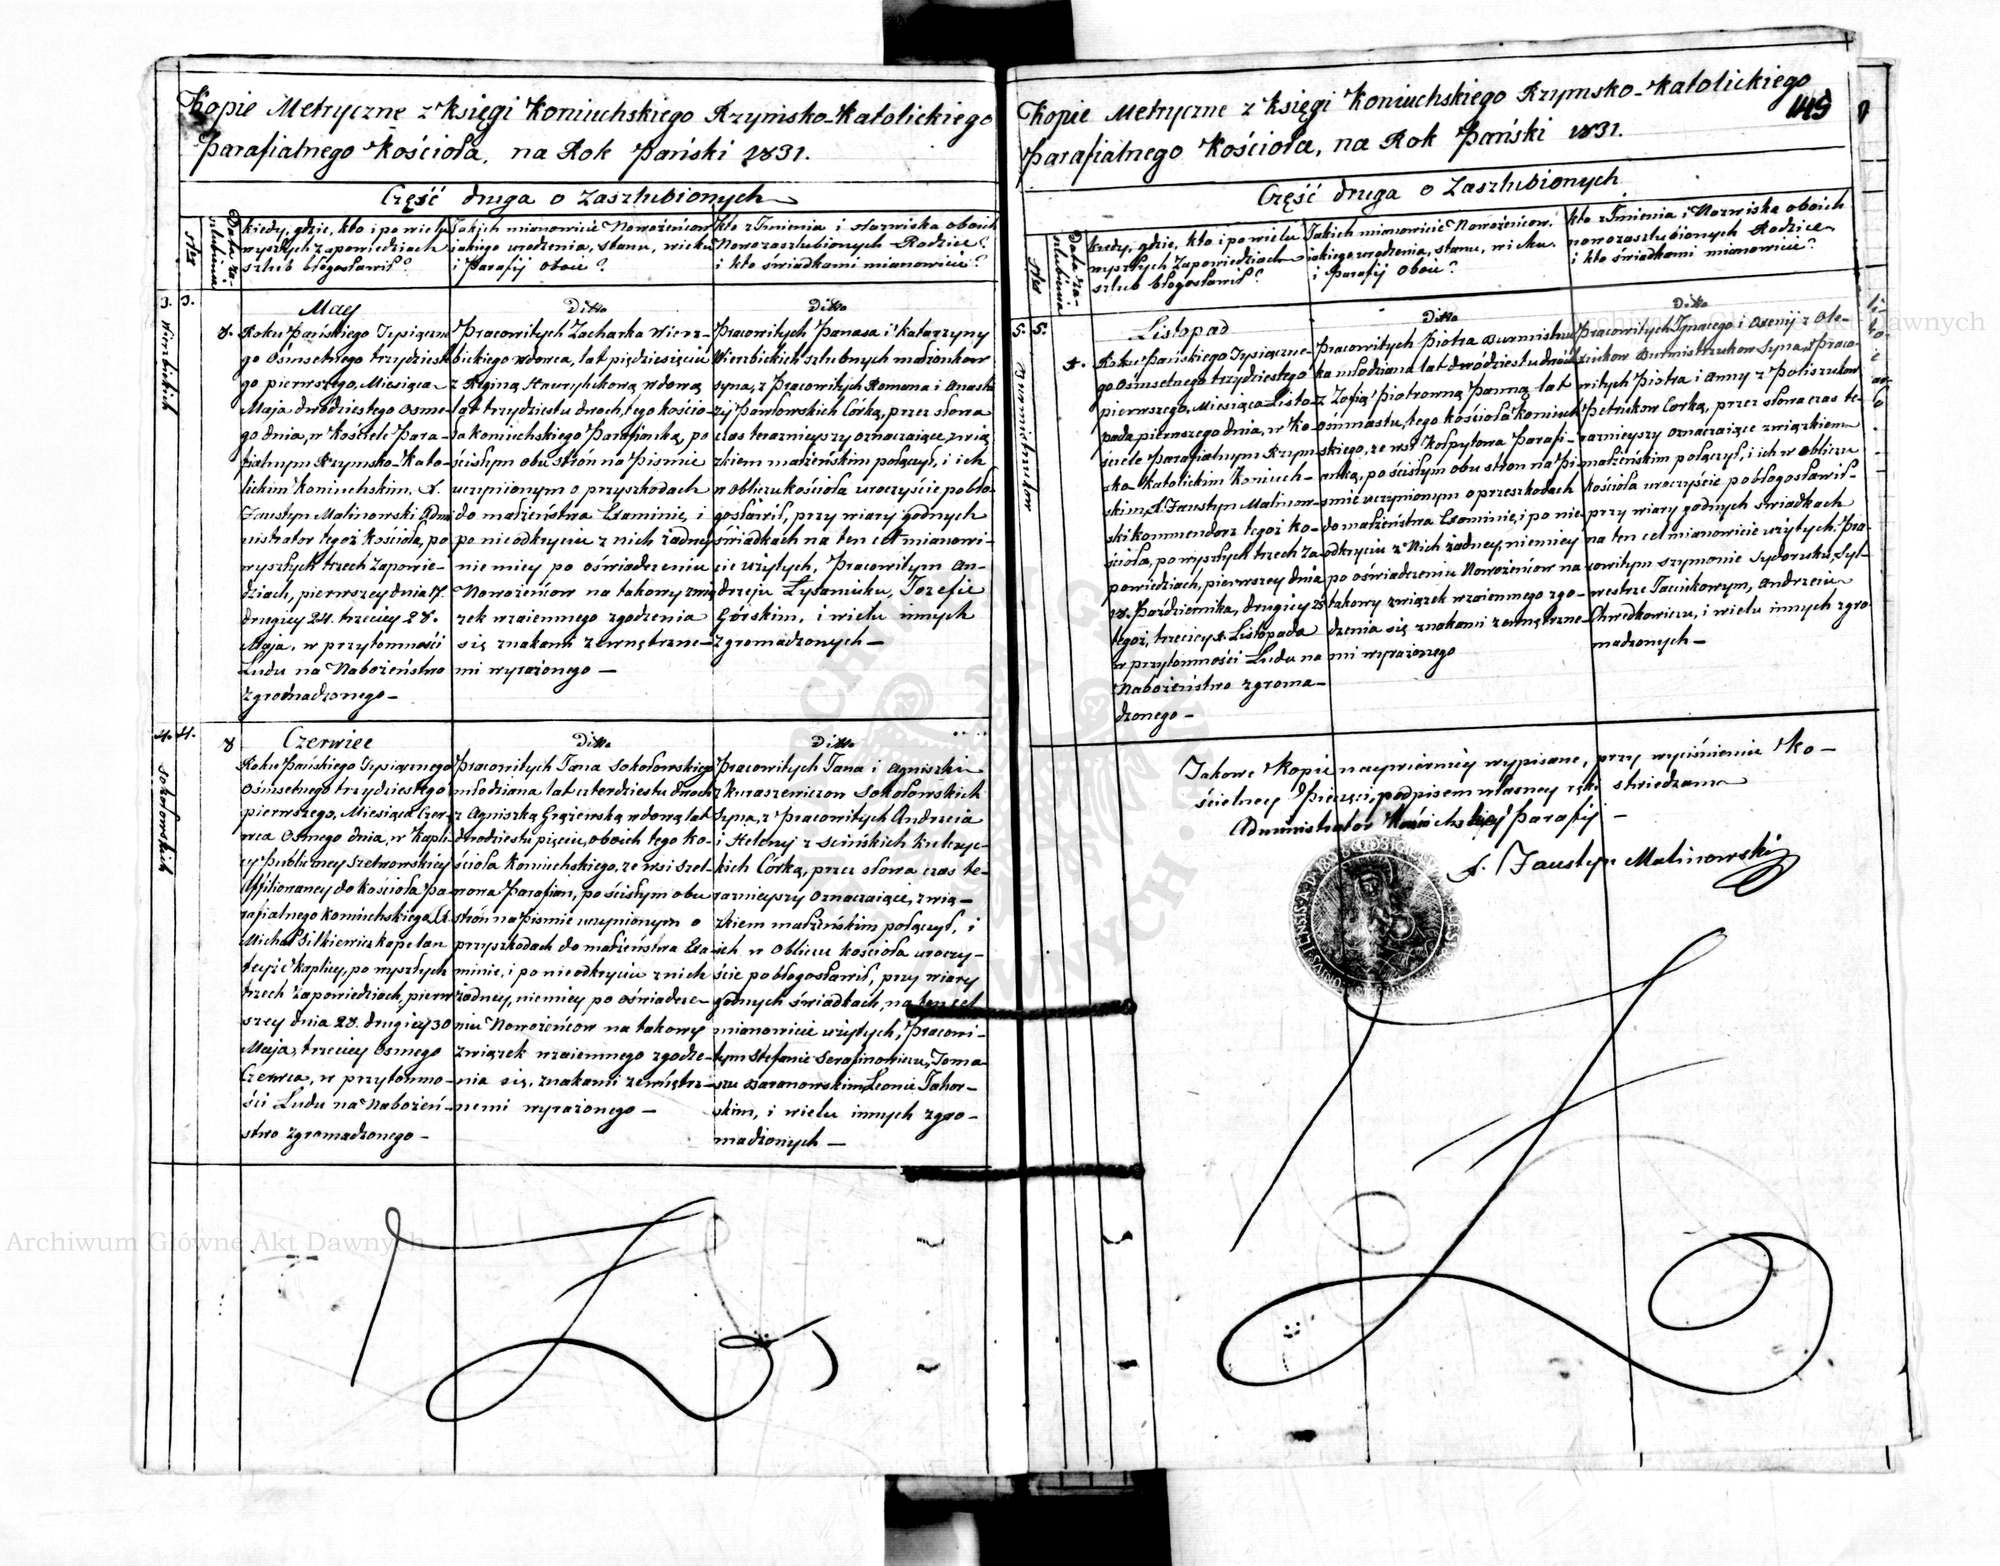 Kopie Metryczne z Księgi Koniuchskiego Rzymsko-Katolickiego
Parafialnego Kościoła, na Rok Pański 1831.
Część druga o Zaszlubionych
Nro
Data zaszlubienia
kiedy, gdzie, kto i po wielu
wyszłych zapowiedziach
szlub błogosławił?
Jakich mianowicie Nowożeńcow
jakiego urodzenia, stanu, wieku
i Parafij oboie?
kto z Imienia i Nazwiska oboich
Nowozaszlubionych Rodzice?
i kto świadkami mianowicie?
3.
3.
Wierzbickich
8.
May
Roku Pańskiego Tysiączne
go Ośmsetnego trzydzieste
go pierwszego, Miesiąca
Maja dwódziestego osme-
go dnia, w Kościele Para-
fialnym Rzymsko-Kato-
lickim Koniuchskim, X.
Faustyn Malinowski Admi
nistrator tegoż Kościoła, po
wyszłych trzech Zapowie-
dziach, pierwszey dnia 17.
drugiey 24. trzeciey 28.
Maja, w przytomności
Ludu na Nabożeństwo
zgromadzonego -
Ditto
Pracowitych Zacharka Wierz-
bickiego wdowca, lat pięćdziesięciu
z Reginą Hawrylukową wdową
lat trzydziestu dwoch, tego kościo-
ła Koniuchskiego Parafianką, po
ścisłym obu strón na Piśmie
uczynionym o przyszkodach
do małżeństwa Examinie, i
po nieodkryciu z nich żadney
niemiey po oświadczeniu
Nowożeńcow na takowy zwią
zek wzaiemnego zgodzenia
się znakami zewnętrzne-
mi wyrażonego -
Ditto
Pracowitych Panasa i Katarzyny
Wierzbickich szlubnych małżonkow
syna, z Pracowitych Romana i Anasta
zyi Pawłowskich Córką, przez słowa
czas teraznieyszy oznaczaiące, zwią
zkiem małżeńskim połączył, i ich
w obliczu kościoła uroczyście pobło-
gosławił, przy wiary godnych
świadkach na ten cel mianowi-
cie użytych, Pracowitym An-
drzeju Łysaniuku, Jozefie
Górskim, i wielu innych
zgromadzonych -
4.
4.
Sokołowskich
8
Czerwiec
Roku Pańskiego Tysiącznego
Ośmsetnego trzydziestego
pierwszego, Miesiąca Czer-
wca Osmego dnia, w Kapli-
cy Publiczney Szelwowskiey
Affiliowaney do Kościoła Pa-
rafialnego Koniuchskiego X.
Michał Silkiewicz kapelan
teyże Kaplicy, po wyszłych
trzech Zapowiedziach, pierw
szey dnia 28. drugiey 30
Maja, trzeciey Osmego
Czerwca, w przytomno-
ści Ludu na Nabożeń-
stwo zgromadzonego -
Ditto
Pracowitych Jana Sokołowskiego
młodziana lat czterdziestu dwoch
z Agniszką Grążewską wdową lat
dwódziestu pięciu, oboich tego Ko-
ścioła Koniuchskiego, ze wsi Szel-
wowa Parafian, po ścisłym obu
strón na Piśmie uczynionym o
przyszkodach do małżeństwa Exa-
minie, i po nieodkryciu z nich
żadney, niemiey po oświadcze-
niu Nowożeńcow na takowy
związek wzaiemnego zgodze-
nia się, znakami zewnętrz-
nemi wyrażonego -
Ditto
Pracowitych Jana i Agniszki
z Kuraszewiczow Sokołowskich
Syna, z Pracowitych Andrzeia
i Heleny z Kulczyc-
kich Córką, przez słowa czas te-
raznieyszy oznaczaiące, zwią-
zkiem małżeńskim połączył, i
ich w Obliczu Kościoła uroczy-
ście pobłogosławił, przy wiary
godnych świadkach, na ten cel
mianowicie użytych, Pracowi-
tym Stefanie Serafinowiczu, Toma-
szu Baranowskim, Leonie Tahor-
skim, i wielu innych zgro-
madzonych -
Kopie Metryczne z Księgi Koniuchskiego Rzymsko-Katolickiego
145
Parafialnego Kościoła, na Rok Pański 1831.
Część druga o Zaszlubionych
Nro
Data zaszlubienia
kiedy, gdzie, kto i po wielu
wyszłych Zapowiedziach
szlub błogosławił?
Jakich mianowicie Nowożeńcow.
jakiego urodzenia, stanu, wieku.
i Parafij Oboie?
kto z Imienia i Nazwiska oboich
nowozaszlubionych Rodzice
i kto świadkami mianowicie?
5.
5.
Burmistrukow
1.
Listopad
Roku Pańskiego Tysiączne-
go Ośmsetnego trzydziestego
pierwszego, Miesiąca Listo-
pada pierwszego dnia, w Ko-
ściele Parafialnym Rzym-
sko-Katolickim Koniuch-
skim, X. Faustyn Malinow-
ski kommendarz tegoż ko-
ścioła, po wyszłych trzech Za-
powiedziach, pierwszey dnia
18. Października, drugiey 25
tegoż, trzeciey 1. Listopada
w przytomności Ludu na
Nabożeństwo zgroma-
dzonego -
Ditto
Pracowitych Piotra Burmistru-
ka młodziana lat dwódziestu dwóch
z Zofią Piotrowną Panną lat
ośmnastu, tego kościoła Koniuch
skiego, ze wsi Kołpytowa Parafi-
anką, po ścisłym obu stron na Pi
smie uczynionym o przeszkodach
do małżeństwa Examinie, i po nie
odkryciu z Nich żadney, niemiey
po oświadczeniu Nowożeńcow na
takowy związek wzaiemnego zgo-
dzenia się znakami zewnętrzne-
mi wyrażonego
Ditto
Pracowitych Ignacego i Oseny z Ole-
Burmistrukow Syna, z Praco-
witych Piotra i Anny z Poliszukow
Petrukow Corką, przez słowa czas te-
raznieyszy oznaczaiące związkiem
małżeńskim połączył, i ich w obliczu
kościoła uroczyście pobłogosławił
przy wiary godnych świadkach
na ten cel mianowicie użytych, Pra
cowitym Szymonie Sydoruku, Syl-
westrze Jacinkowym, Andrzeiu
Chwedkowiczu, i wielu innych zgro
madzonych -
Jakowe Kopie naywierniey wypisane, przy wyciśnieniu Ko-
ścielney Pieczęci, podpisem własney ręki stwierdzam
Administrator Parafij -
X. Faustyn Malinowski
Archiwum Główne Akt Dawnych
Archiwum Główne Akt Dawnych